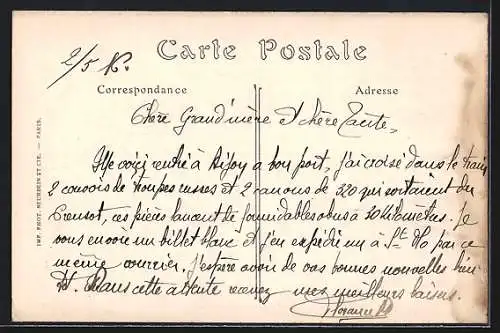 2/5 K.
Carte Postale
Correspondance
Adresse
Chère Grand'mère et chère Tante,
Me voici rentré à Dijon a bon port, j'ai croisé dans le train
2 convois de troupes russes et 2 canons de 320 qui sortaient du
Creusot, ces pièces lancent de formidables obus à 30 kilomètres. Je
vous envoie un billet blanc et j'en expédie un à St Ho par ce
même courrier. J'espère avoir de vos bonnes nouvelles bien
Dans cette attente recevez mes meilleurs baisers.
IMP. PHOT. NEURDEIN ET CIE. — PARIS.